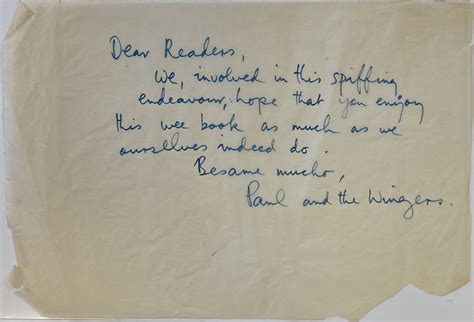 Dear Readers,
We, involved in this spiffing
endeavour, hope that you enjoy
this wee book as much as we
ourselves indeed do.
Besame mucho,
Paul and the Wingers.